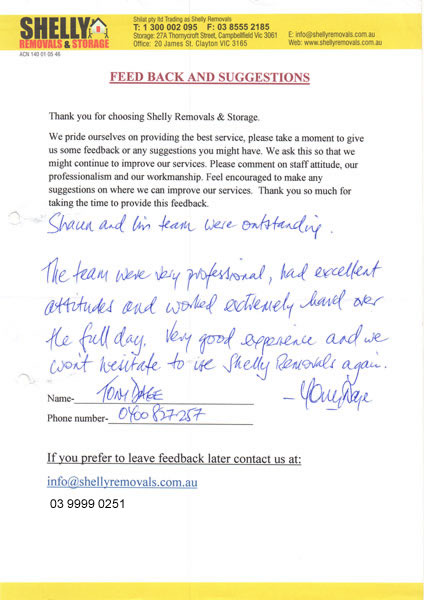 SHELLY
REMOVALS & STORAGE
ACN 140 01 05 46
Shilat pty ltd Trading as Shelly Removals
T: 1 300 002 095 F: 03 8555 2185
Storage: 27A Thornycroft Street, Campbellfield Vic 3061
Office: 20 James St. Clayton VIC 3165
E: info@shellyremovals.com.au
Web: www.shellyremovals.com.au
FEED BACK AND SUGGESTIONS
Thank you for choosing Shelly Removals & Storage.
We pride ourselves on providing the best service, please take a moment to give
us some feedback or any suggestions you might have. We ask this so that we
might continue to improve our services. Please comment on staff attitude, our
professionalism and our workmanship. Feel encouraged to make any
suggestions on where we can improve our services. Thank you so much for
taking the time to provide this feedback.
Shaun and his team were outstanding.
The team were very professional, had excellent
attitudes and worked extremely hard over
the full day. Very good experience and we
won't hesitate to use Shelly Removals again.
Name- TONY DAGE
Phone number- 0400 827 257
If you prefer to leave feedback later contact us at:
info@shellyremovals.com.au
03 9999 0251